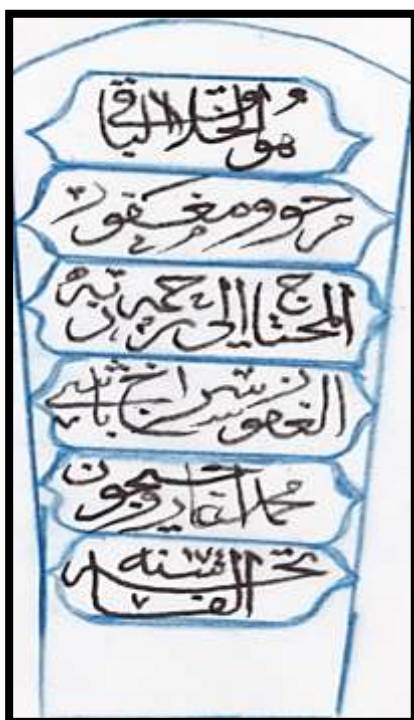 هو الخلاق الباقي
مرحوم ومغفور
المحتاج الى رحمة ربه
الغفور سراج باشى
محمد اغا روحيچون
الفاتحه سنه